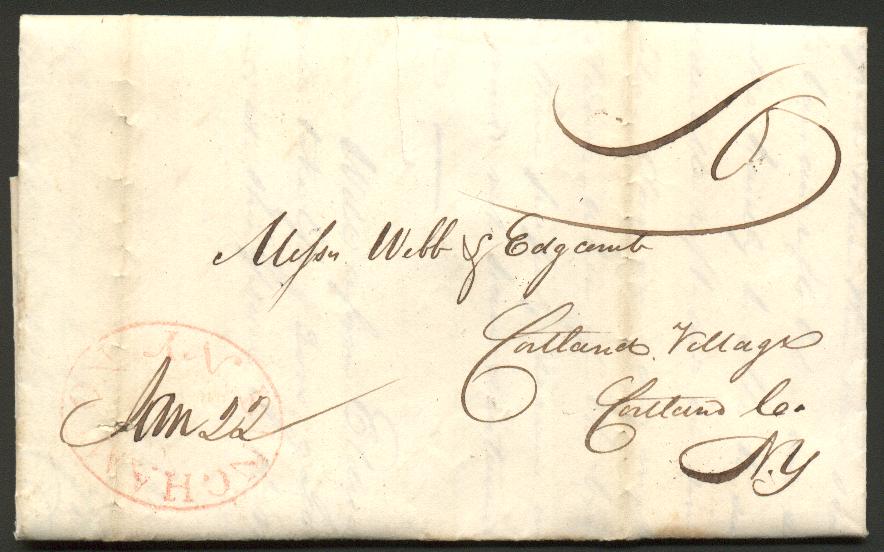 Messrs Webb & Edgcomb
Cortland Village
Cortland Co.
N.Y
BINGHAMTON N.Y
Jan 22